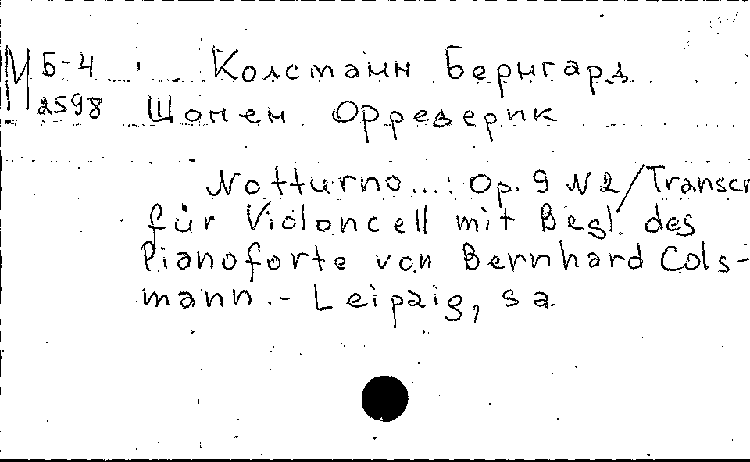 М Б-4 Колсмайн Бернгард
2598 Шопен Фредерик
Notturno...: Op. 9 N 2/Transcr
für Violoncell mit Begl. des
Pianoforte von Bernhard Cols-
mann.- Leipzig, s a